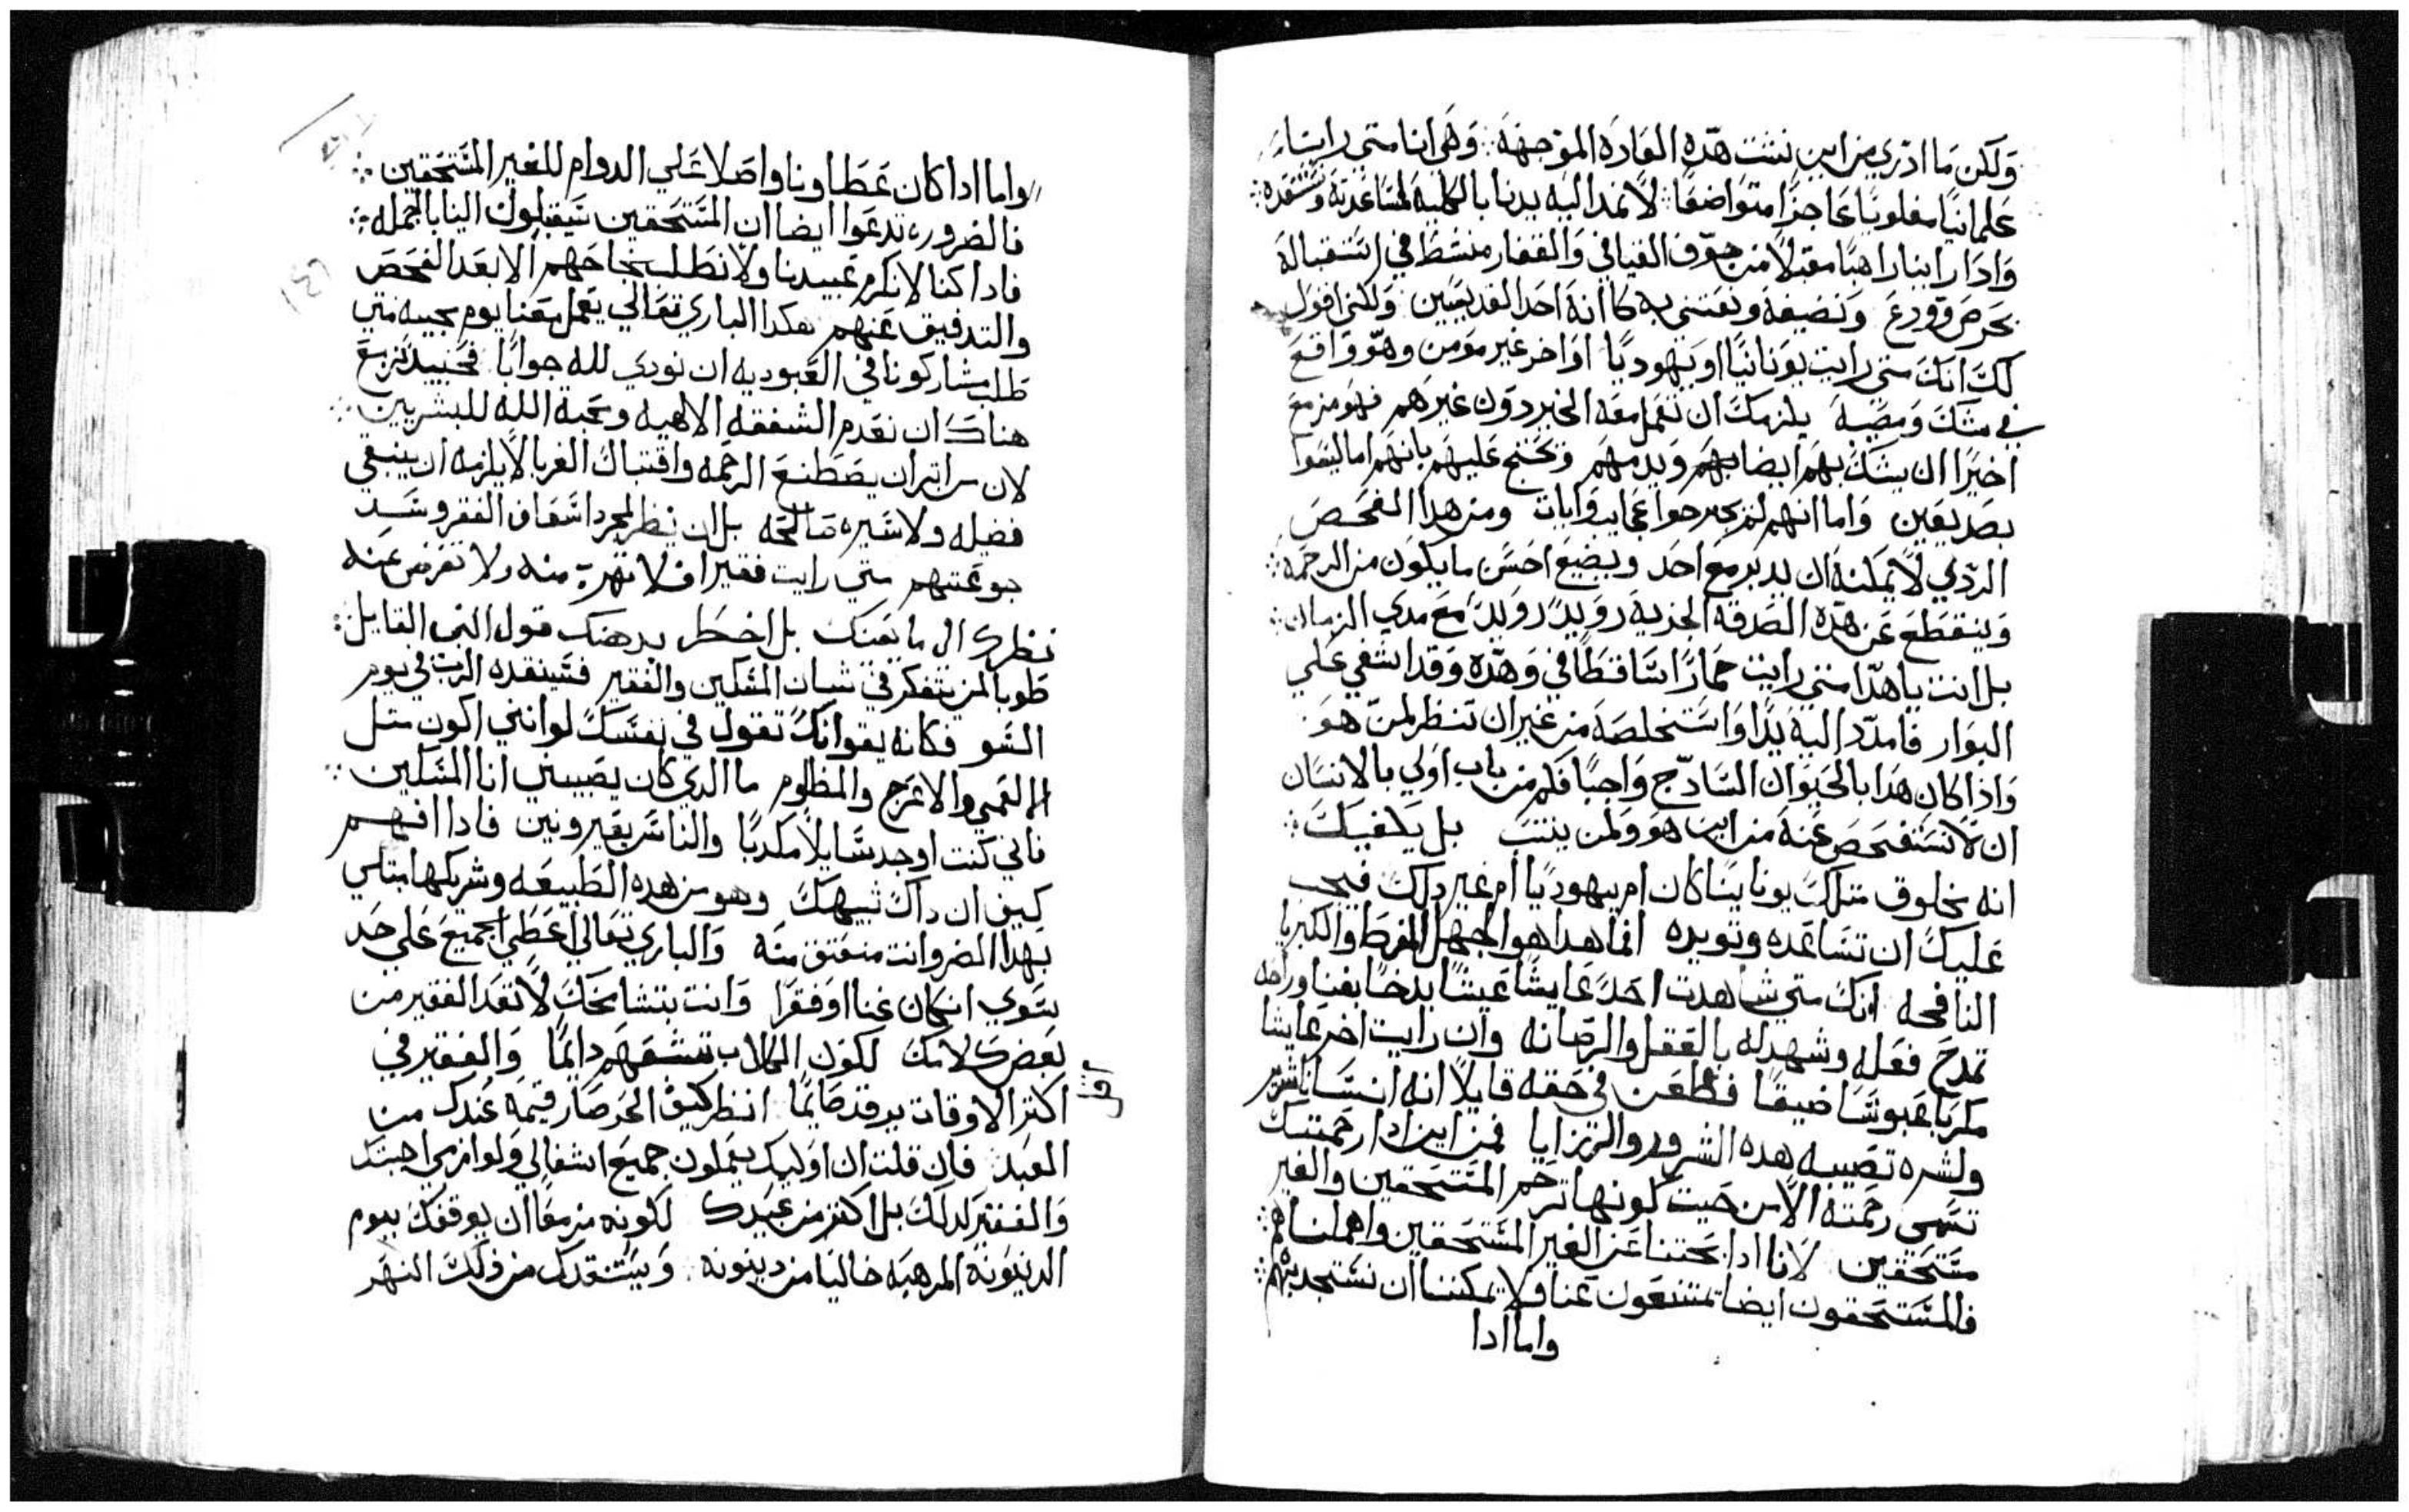 ولكن ما ادري من اين نشت هده العاده الموجهه وهي انا متى راينا
علمانيًا مغلوبًا عاجزًا متواضعًا لا نمد اليه يدنا بالكليه لمساعدته ونستنقده
وادا راينا راهبًا مقبلاً من جوف الفيافي والقفار منشط في استقباله
بحرص وورع ونضيفه ونعتني به كانه احد القديسين ولكني اقول
لك انك متى رايت يونانيًا او يهوديًا او اخر غير مومن وهو واقع
في شك ومصيبه يلزمك ان تعمل معه الخير دون غيرهم فهو مزمع
اخيرًا ان يشك بهم ايضا ويدمهم وتحتج عليهم بانهم اما ليسوا
بصديقين واما انهم لم يجترحوا عجايب وايات ومن هدا الفحص
الردي لا يمكنه ان يدبر مع احد ويضيع احسن ما يكون من الرحمه
وينقطع عن هده الصدقه الجزيه رويدًا رويدًا مع مدي الزمان
بل انت يا هدا متى رايت حمارًا ساقطًا في وهده وقد اشفي علي
البوار فامدد اليه يدًا واستخلصه من غير ان تنظر لمن هو
وادا كان هدا بالحيوان السادج واجبًا فكم من باب اولي بالانسان
ان لا تستفحص عنه من اين هو ولمن ينتسب بل يكفيك
انه مخلوق متلك يونانيًا كان ام يهوديًا ام غير دلك فيجب
عليك ان تساعده وتويده انما هدا هو الجهل المفرط والكبريا
النافحه انك متى شاهدت احدًا عايشًا عيشًا بدخًا بغنا وراحه
تمدح فعله وشهد له بالعقل والرصانه وان رايت اخر عايشا
مكربًا عبوسًا ضيقًا فطعن في حقه قايلاً انه انسانًا شرير
ولشره تصيبه هده الشرور والرزايا فمن اين ادا رحمتك
تسمى رحمته الا من حيت كونها ترحم المستحقين والغير
مستحقين لانا ادا بحتنا عن الغير المستحقين واهملناهم
فالمستحقون ايضا يمتنعون عنا ولا يمكننا ان نستجدبهم
واما ادا
واما ادا كان عطاونا واصلا علي الدوام للغير المستحقين
فالضروره تدعوا ايضا ان المستحقين سيقبلون الينا بالجمله
فادا كنا لا نكرم عبيدنا ولا نطلب نجاحهم الا بعد الفحص
والتدقيق عنهم هكدا الباري تعالي يعمل معنا يوم مجيه متى
طلب مشاركونا في العبوديه ان نودي لله جوابًا فحينيد نزمع
هناك ان نعدم الشفقه الالهيه ومحبه الله للبشريين
لان من اتر ان يصطنع الرحمه واقتبال الغربا لا يلزمه ان يبتغي
فضيله ولا سيره صالحه بل ان ينظر لمجرد اسعاف الفقر وشد
جوعتهم متي رايت فقيرًا فلا تهرب منه ولا تعرض عنه
نظرك الى ما بل اخطر بدهنك قول النبي القايل
طوبا لمن يتفكر في شان المسكين والفقير فسينقده الرب في يوم
السو فكانه يقول انك تقول في نفسك لو انني اكون متل
العمي والاعرج والمظلوم ما الدي كان يصيبني انا المسكين
فاني كنت اوجد سايلاً مكديًا والناس يعيرونني فادا افهم
كيف ان داك شبيهك وهو من هده الطبيعه وشريكها مبتلي
بهدا الضر وانت منعتق منه والباري تعالي اعطي الجميع علي حد
سوي ان كان غنا او فقرًا وانت بتشامخك لا تعد الفقير من
بعض كلابك لكون الكلاب تشبعهم دايمًا والفقير في
اكتر الاوقات يرقد صايمًا انظر كيف الحر صار قيمه عندك من
العبد فان قلت ان اوليك يعملون جميع اشغالي ولوازمي اجبتك
والفقير لدلك بل اكتر من عبيدك لكونه مزمعًا ان يوقفك بيوم
الدينونه المرهبه خاليًا من دينونه ويستنقدك من دلك النهر